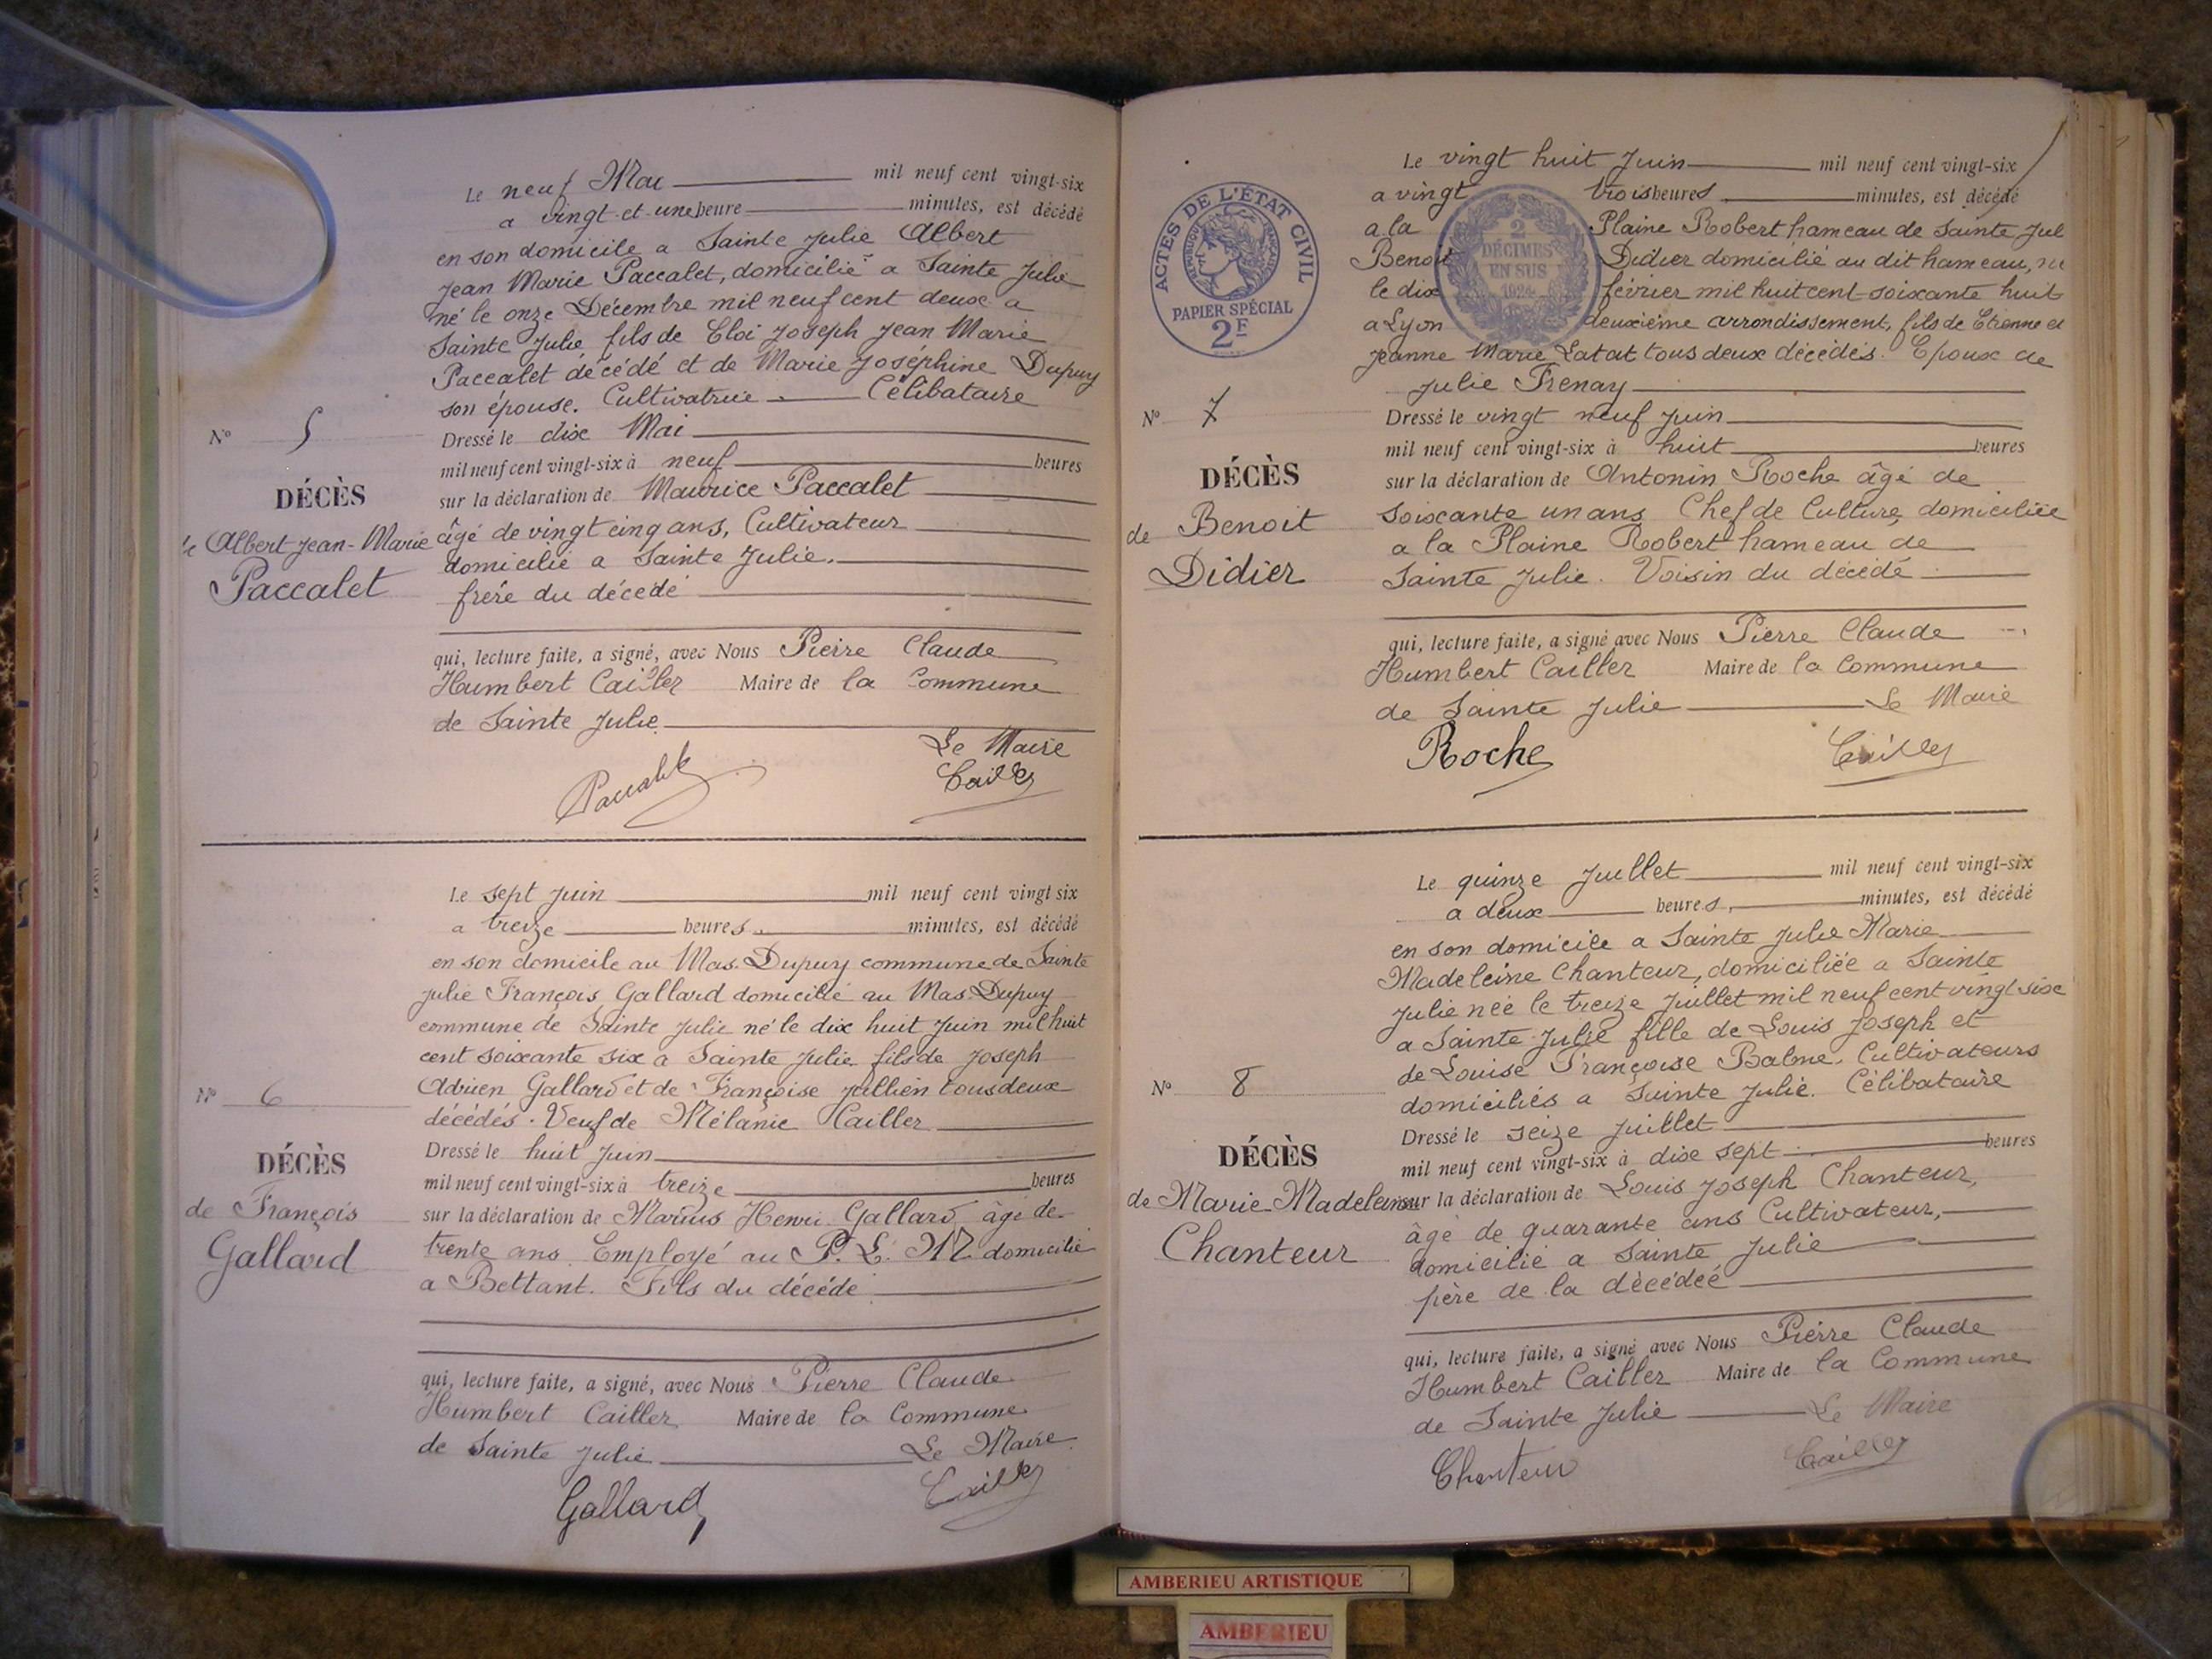 Le neuf Mai mil neuf cent vingt-six
a vingt et une heure minutes, est décédé
en son domicile a Sainte Julie Albert
Jean Marie Paccalet, domicilié a Sainte Julie
né le onze Décembre mil neuf cent deux a
Sainte Julie fils de Eloi Joseph Jean Marie
Paccalet décédé et de Marie Joséphine Dupuy
son épouse. Cultivatrice Célibataire
Nº 5
Dressé le dix Mai
mil neuf cent vingt-six à neuf heures
DÉCÈS
sur la déclaration de Maurice Paccalet
de Albert Jean-Marie
Paccalet
âgé de vingt cinq ans, Cultivateur
domicilié a Sainte Julie.
frère du décédé
qui, lecture faite, a signé, avec Nous Pierre Claude
Humbert Cailler Maire de la Commune
de Sainte Julie
Le Maire
Paccalet Cailler
Le sept Juin mil neuf cent vingt six
a treize heures minutes, est décédé
en son domicile au Mas. Dupuy commune de Sainte
Julie François Gallard domicilié au Mas. Dupuy
commune de Sainte Julie né le dix huit Juin mil huit
cent soixante six a Sainte Julie fils de Joseph
Adrien Gallard et de Françoise Jullien tous deux
Nº 6
décédés. Veuf de Mélanie Cailler
Dressé le huit Juin
DÉCÈS
mil neuf cent vingt-six à treize heures
de François
Gallard
sur la déclaration de Marius Henri Gallard âgé de
trente ans Employé au P. L. M. domicilié
a Bettant. Fils du décédé
qui, lecture faite, a signé, avec Nous Pierre Claude
Humbert Cailler Maire de la Commune
de Sainte Julie Le Maire
Gallard Cailler
Le vingt huit Juin mil neuf cent vingt-six
a vingt trois heures minutes, est décédé
a la Plaine Robert hameau de Sainte Jul
Benoit Didier domicilié au dit hameau, né
le dix février mil huit cent soixante huit
a Lyon deuxième arrondissement, fils de Etienne et
Jeanne Marie Latat tous deux décédés. Epoux de
Julie Frenay
ACTES DE L'ÉTAT CIVIL
RÉPUBLIQUE FRANÇAISE
PAPIER SPÉCIAL
2F
2
DÉCIMES
EN SUS
1924
Nº 7
Dressé le vingt neuf Juin
mil neuf cent vingt-six à huit heures
DÉCÈS
de Benoit
Didier
sur la déclaration de Antonin Roche âgé de
soixante un ans Chef de Culture, domiciliée
a la Plaine Robert hameau de
Sainte Julie. Voisin du décédé
qui, lecture faite, a signé avec Nous Pierre Claude
Humbert Cailler Maire de la Commune
de Sainte Julie Le Maire
Roche Cailler
Le quinze Juillet mil neuf cent vingt-six
a deux heures, minutes, est décédé
en son domicile a Sainte Julie Marie
Madeleine Chanteur, domiciliée a Sainte
Julie née le treize Juillet mil neuf cent vingt six
a Sainte Julie fille de Louis Joseph et
de Louise Françoise Balme. Cultivateurs
Nº 8
domiciliés a Sainte Julie. Célibataire
Dressé le seize Juillet
DÉCÈS
mil neuf cent vingt-six à dix sept heures
de Marie Madeleine
Chanteur
sur la déclaration de Louis Joseph Chanteur,
âgé de quarante ans Cultivateur,
domicilié a Sainte Julie
père de la décédée
qui, lecture faite, a signé avec Nous Pierre Claude
Humbert Cailler Maire de la Commune
de Sainte Julie Le Maire
Chanteur Cailler
AMBERIEU ARTISTIQUE
AMBERIEU